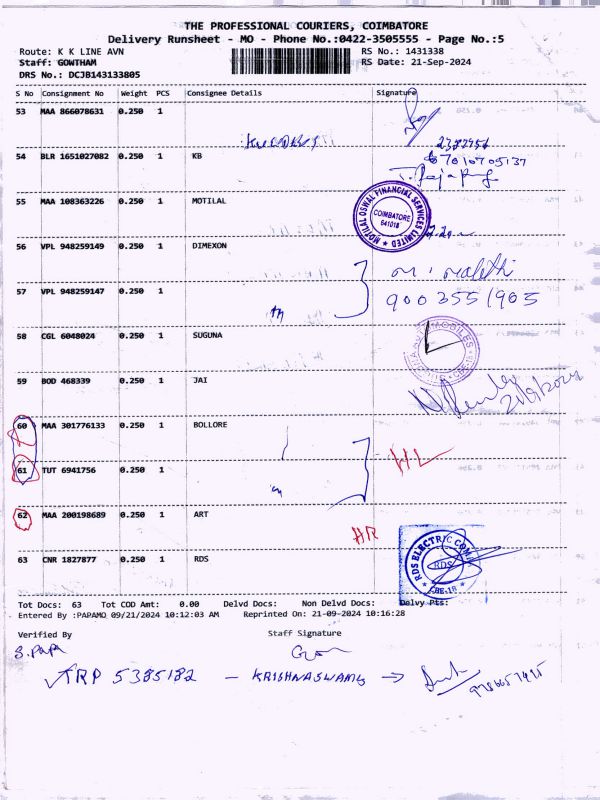 THE PROFESSIONAL COURIERS, COIMBATORE
Delivery Runsheet - MO - Phone No.:0422-3505555 - Page No.:5
Route: K K LINE AVN RS No.: 1431338
Staff: GOWTHAM RS Date: 21-Sep-2024
DRS No.: DCJB143133805
S No Consignment No Weight PCS Consignee Details Signature
53 MAA 866078631 0.250 1
54 BLR 1651027082 0.250 1 KB
55 MAA 108363226 0.250 1 MOTILAL
MOTILAL OSWAL FINANCIAL SERVICES LIMITED
COIMBATORE
641018
56 VPL 948259149 0.250 1 DIMEXON
57 VPL 948259147 0.250 1
9003551905
58 CGL 6048024 0.250 1 SUGUNA
59 BOD 468339 0.250 1 JAI
60 MAA 301776133 0.250 1 BOLLORE
61 TUT 6941756 0.250 1
HL
62 MAA 200198689 0.250 1 ART
HR
63 CNR 1827877 0.250 1 RDS
RDS ELECTRIC
RDS
CBE-18
Tot Docs: 63 Tot COD Amt: 0.00 Delvd Docs: Non Delvd Docs: Delvy Pts:
Entered By :PAPAMO 09/21/2024 10:12:03 AM Reprinted On: 21-09-2024 10:16:28
Verified By Staff Signature
S.PAPA
TRP 5385182 - KRISHNASWAMY →